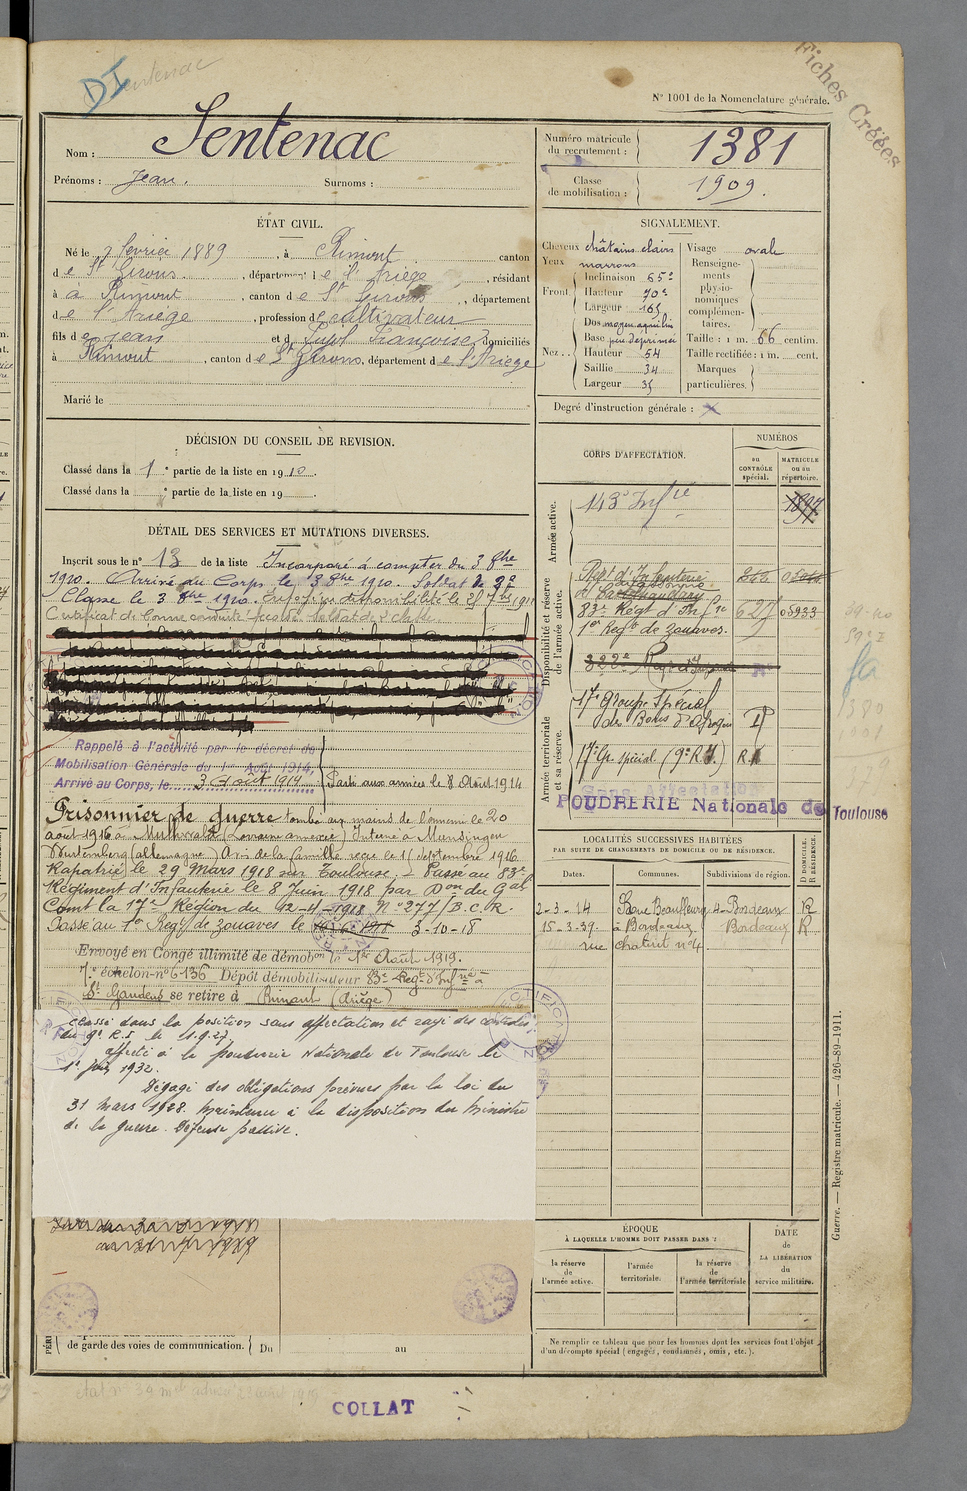 DI
Sentenac
Fiches Créées
N° 1001 de la Nomenclature générale.
Nom : Sentenac
Prénoms : Jean. Surnoms :
Numéro matricule du recrutement : 1381
Classe de mobilisation : 1909.
ÉTAT CIVIL.
Né le 7 février 1889, à Rimont, canton
de St Girons, département de l'Ariège, résidant
à à Rimont, canton de St Girons, département
de l'Ariège, profession de cultivateur
fils de Jean et de Pujol Françoise, domiciliés
à Rimont, canton de St Girons, département de l'Ariège
Marié le
SIGNALEMENT.
Cheveux châtains clairs
Yeux marrons
Front Inclinaison 65°
Hauteur 70°
Largeur 165
Nez Dos moyen aquilin
Base peu déprimée
Hauteur 54
Saillie 34
Largeur 35
Visage ovale
Renseignements physionomiques complémentaires.
Taille : 1 m. 66 centim.
Taille rectifiée : 1 m. cent.
Marques particulières.
Degré d'instruction générale :
DÉCISION DU CONSEIL DE REVISION.
Classé dans la 1e partie de la liste en 1910.
Classé dans la e partie de la liste en 19
DÉTAIL DES SERVICES ET MUTATIONS DIVERSES.
Inscrit sous le n° 13 de la liste Incorporé à compter du 3 8bre
1910. Arrivé au Corps le 3 8bre 1910. Soldat de 2e
Classe le 3 8bre 1910. En disponibilité le 25 7bre 1911
Certificat de bonne conduite accordé. Soldat de 2e classe.
Rappelé à l'activité par le décret de
Mobilisation Générale du 1er Août 1914,
Arrivé au Corps, le 3 Août 1914
Parti aux armées le 8 Août 1914
Prisonnier de guerre tombé aux mains de l'ennemi le 20
août 1916 à (Lorraine annexée) Interné à Munsingen
Wurtemberg (allemagne) Avis de la famille reçu le 1 Septembre 1916.
Rapatrié le 29 Mars 1918 sur Toulouse. - Passé au 83e
Régiment d'Infanterie le 8 Juin 1918 par Don du Gal
Comt la 17e Région du 12-4-1918 N° 277/B.C.R.
Passé au 1er Regt de Zouaves le 3-10-18
Envoyé en Congé illimité de démobon le 1er Août 1919.
7e échelon n° 6-136 Dépôt démobilisateur 83e Regt d'Infrie à
St Gaudens se retire à Rimont (Ariège)
Classé dans la position sans affectation et rayé des contrôles
du 9e R.I. le 11-9-27
affecté à la poudrerie Nationale de Toulouse le
1er Juin 1932.
Dégagé des obligations prévues par la loi du
31 Mars 1928. Maintenu à la disposition du Ministre
de la guerre. Défense passive.
CORPS D'AFFECTATION.
NUMÉROS
au CONTRÔLE spécial.
MATRICULE ou au répertoire.
Armée active.
143e Infie
1897
Disponibilité et réserve de l'armée active.
Regt d'Infanterie
de Castelnaudary
83e Regt d'Infie 627 05933
1er Regt de Zouaves.
322e Regt d'Infanterie
Armée territoriale et sa réserve.
17e Groupe Spécial
des Bons d'Afrique
17e Gr. spécial (9e R.I.) R.
Sans Affectation
POUDRERIE Nationale de Toulouse
LOCALITÉS SUCCESSIVES HABITÉES
PAR SUITE DE CHANGEMENTS DE DOMICILE OU DE RÉSIDENCE.
Dates. Communes. Subdivisions de région. D DOMICILE. R RÉSIDENCE.
2-3-14 Bordeaux R
15-3-39. à Bordeaux Bordeaux R
rue n° 4
ÉPOQUE
À LAQUELLE L'HOMME DOIT PASSER DANS :
la réserve de l'armée active.
l'armée territoriale.
la réserve de l'armée territoriale
DATE de LA LIBÉRATION du service militaire.
Ne remplir ce tableau que pour les hommes dont les services font l'objet
d'un décompte spécial (engagés, condamnés, omis, etc.).
de garde des voies de communication. Du au
Guerre. — Registre matricule. — 426-89-1911.
COLLAT